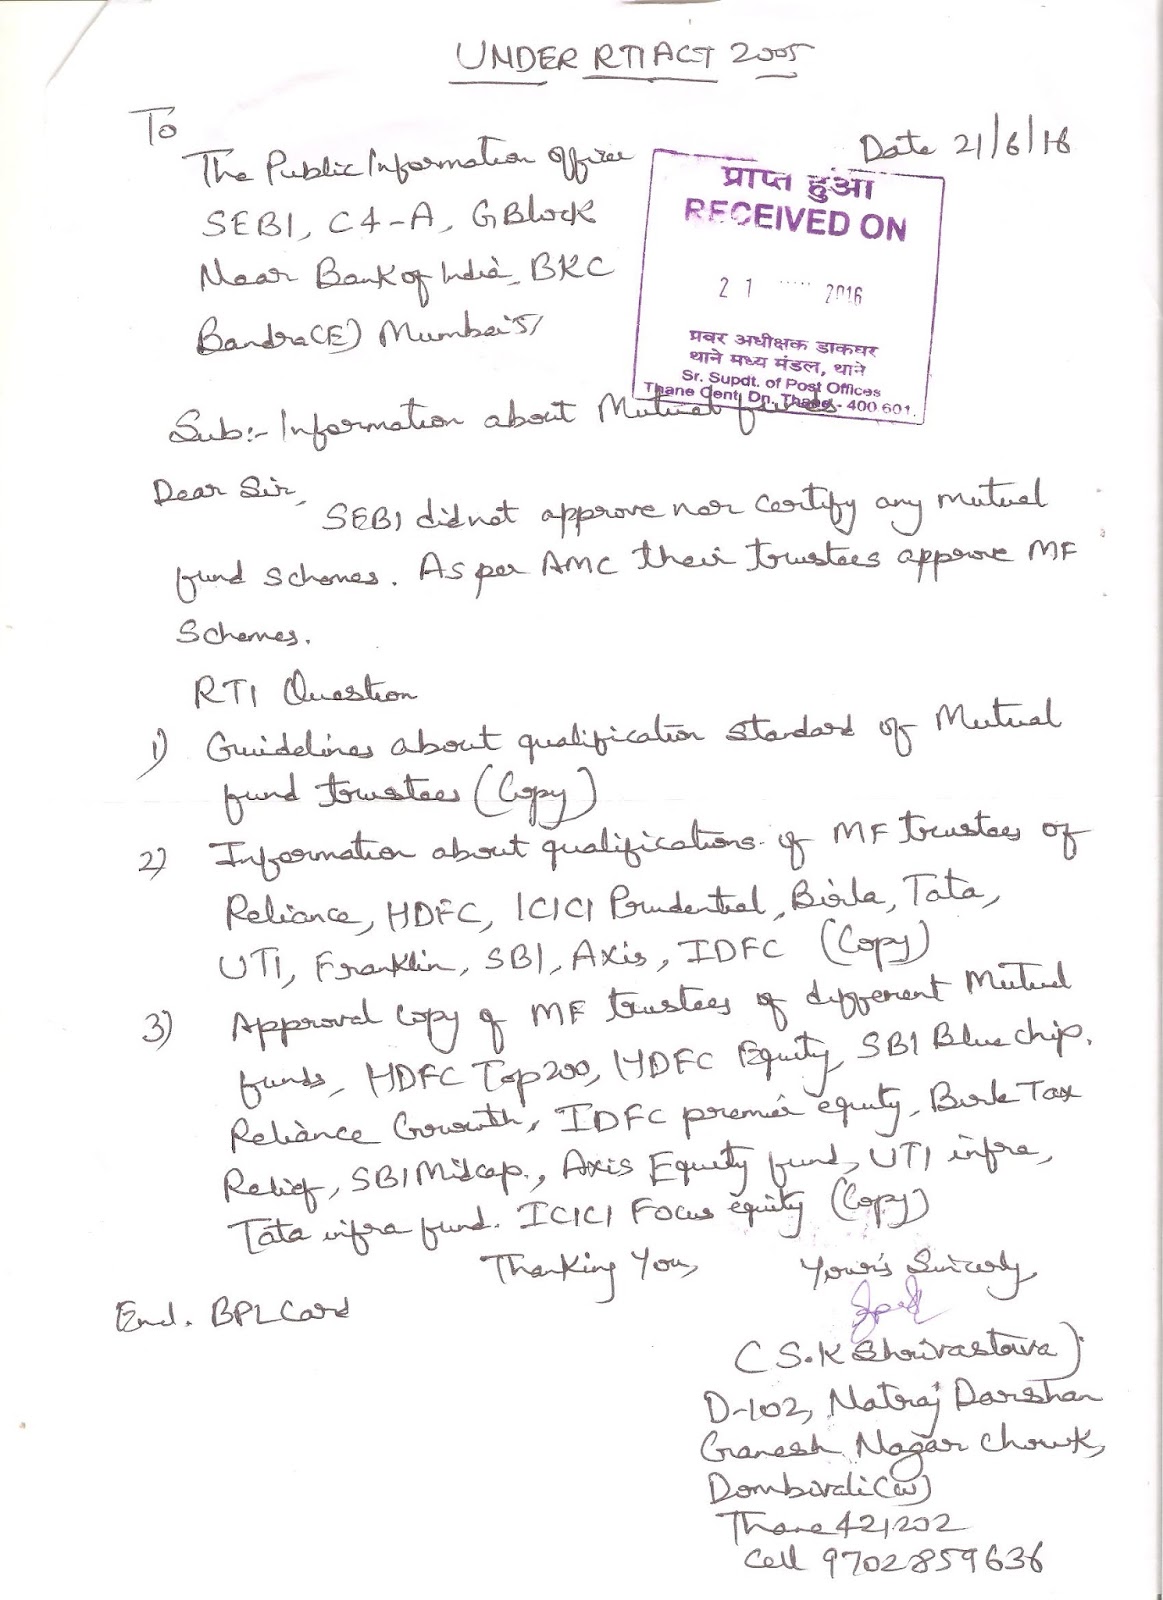 UNDER RTI ACT 2005
To
Date 21/6/16
The Public Information Officer
SEBI, C4-A, G Block
Near Bank of India, BKC
Bandra(E) Mumbai 51
प्राप्त हुआ
RECEIVED ON
21 2016
प्रवर अधीक्षक डाकघर
थाने मध्य मंडल, थाने
Sr. Supdt. of Post Offices
Thane Cent. Dn., Thane - 400 601.
Sub:- Information about Mutual funds
Dear Sir,
SEBI did not approve nor certify any mutual
fund schemes. As per AMC their trustees approve MF
Schemes.
RTI Question
1) Guidelines about qualification standard of Mutual
fund trustees (Copy)
2) Information about qualifications of MF trustees of
Reliance, HDFC, ICICI Prudential, Birla, Tata,
UTI, Franklin, SBI, Axis, IDFC (Copy)
3) Approval copy of MF trustees of different Mutual
funds, HDFC Top 200, HDFC Equity, SBI Blue chip.
Reliance Growth, IDFC premier equity, Birla Tax
Relief, SBI Midcap., Axis Equity fund, UTI infra,
Tata infra fund. ICICI Focus equity (Copy)
Thanking You,
Your's Sincerly,
Encl. BPL Card
(S.K Shrivastava)
D-102, Natraj Darshan
Ganesh Nagar Chowk,
Dombivali (w)
Thane 421202
Cell 9702859636